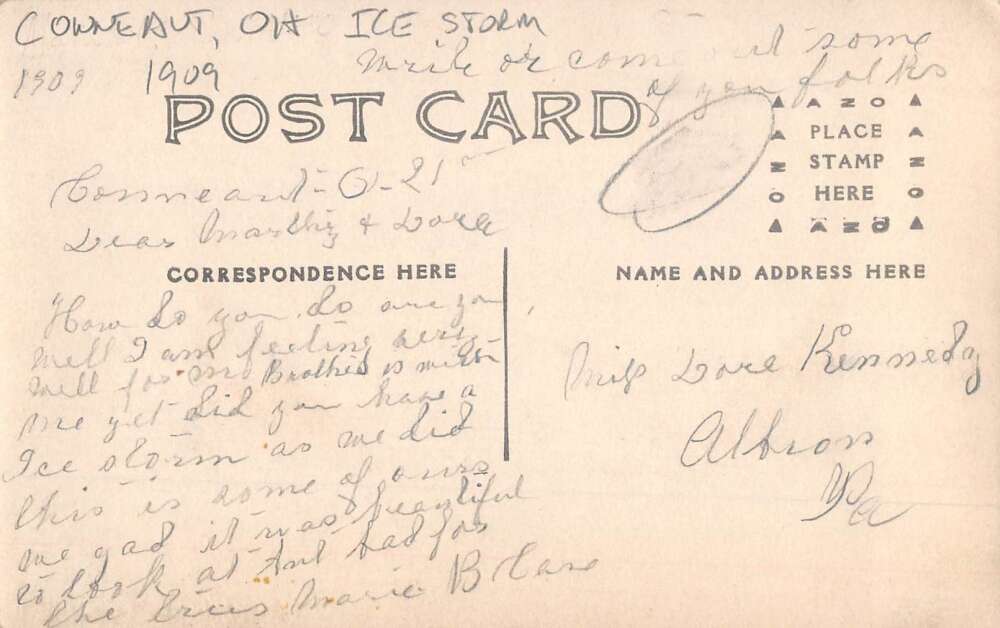 CONNEAUT, OH ICE STORM
1909 1909
Write or come out some
of you folks
POST CARD
AZO
PLACE
STAMP
HERE
Conneaut - O - 21
Dear Marthy & Dora
CORRESPONDENCE HERE
NAME AND ADDRESS HERE
How do you do are you
well I am feeling very
well for me Brother is with
me yet did you have a
Ice storm as we did
this is some of ours
we had it was beautiful
to look at but bad for
the trees Marie B Lane
Miss Dora Kennedy
Albion
Pa